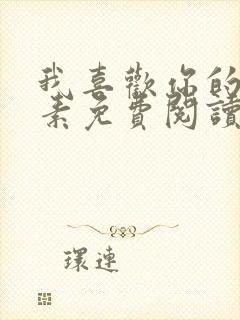 我喜歡你的
素免費閱讀
環連